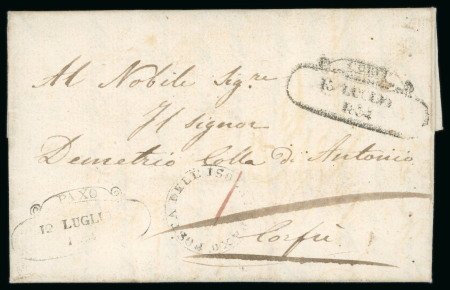 CORFU
13 LUGLIO
1834
Al Nobile Sig.re
Il Signor
Demetrio Colla di Antonio
Corfù
PAXO
12 LUGLI